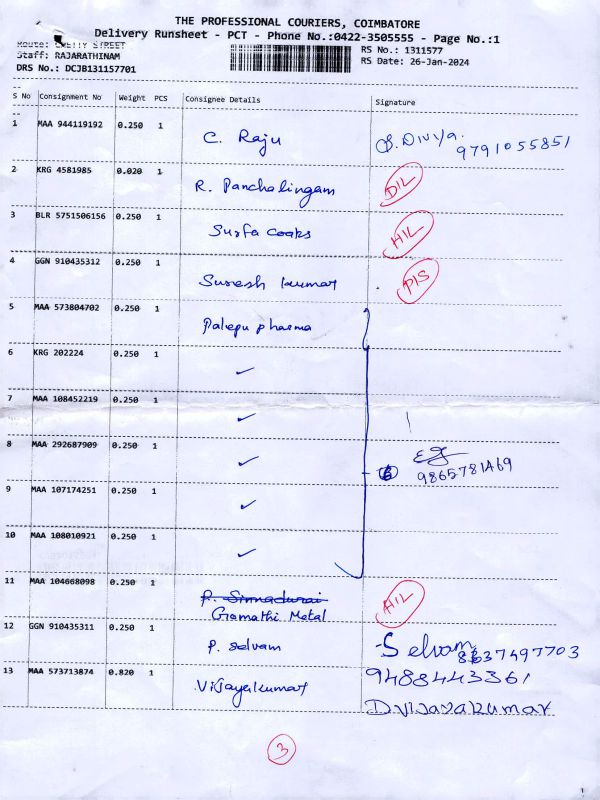 THE PROFESSIONAL COURIERS, COIMBATORE
Delivery Runsheet - PCT - Phone No.:0422-3505555 - Page No.:1
Route: CHETTY STREET
RS No.: 1311577
Staff: RAJARATHINAM
RS Date: 26-Jan-2024
DRS No.: DCJB131157701
S No Consignment No Weight PCS Consignee Details Signature
1 MAA 944119192 0.250 1 C. Raju S. Divya. 9791055851
2 KRG 4581985 0.020 1 R. Panchalingam DIL
3 BLR 5751506156 0.250 1 Surfa coats HIL
4 GGN 910435312 0.250 1 Suresh kumar PIS
5 MAA 573804702 0.250 1 Palepu pharma
6 KRG 202224 0.250 1 ✓
7 MAA 108452219 0.250 1 ✓
8 MAA 292687909 0.250 1 ✓ 6 9865781469
9 MAA 107174251 0.250 1 ✓
10 MAA 108010921 0.250 1 ✓
11 MAA 104668098 0.250 1 P. Sinnadurai HIL
Gomathi Metal
12 GGN 910435311 0.250 1 P. Selvam Selvam 8637497703
13 MAA 573713874 0.820 1 Vijayakumar 9488443361
D. Vijayakumar
3